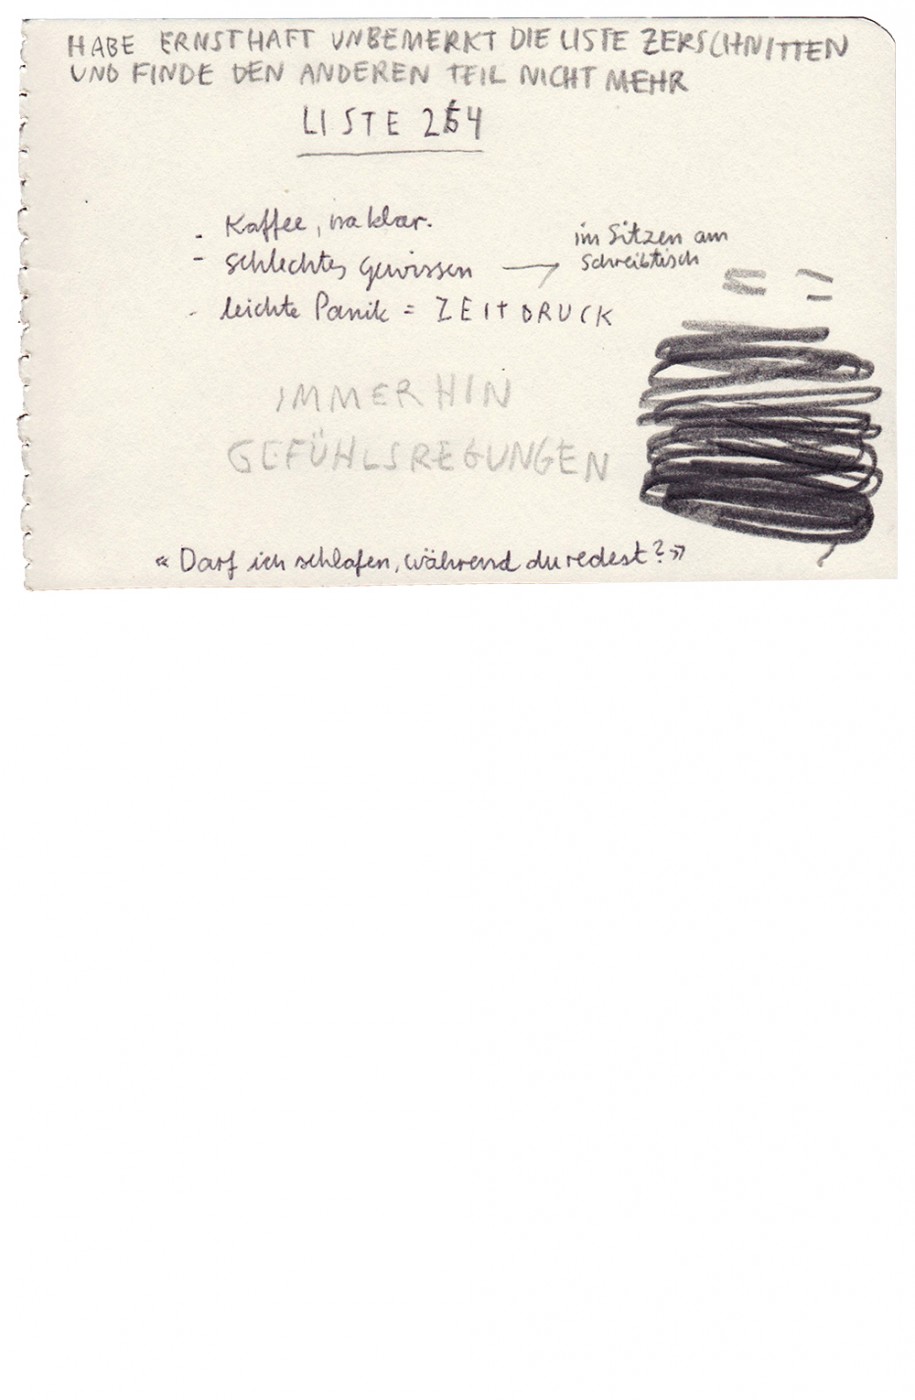 HABE ERNSTHAFT UNBEMERKT DIE LISTE ZERSCHNITTEN
UND FINDE DEN ANDEREN TEIL NICHT MEHR
LISTE 254
- Kaffee, na klar.
- schlechtes Gewissen → im Sitzen am
schreibtisch
- leichte Panik = ZEITDRUCK
IMMERHIN
GEFÜHLSREGUNGEN
« Darf ich schlafen, während du redest? »